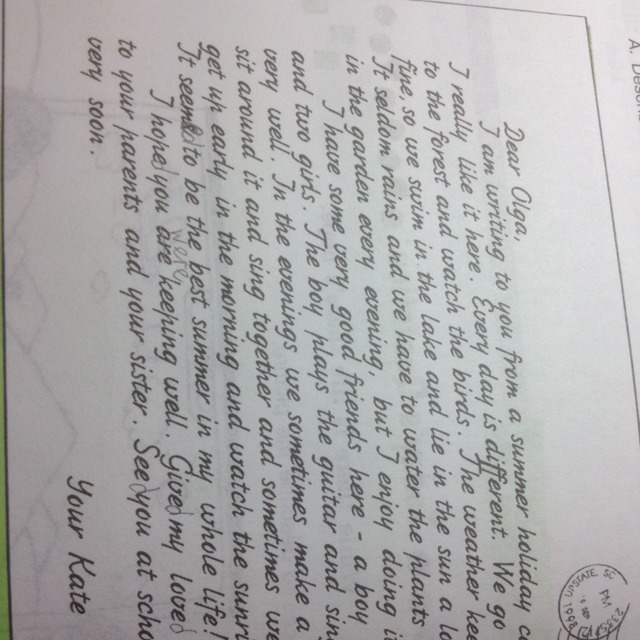 Dear Olga,
I am writing to you from a summer holiday
I really like it here. Every day is different. We go
to the forest and watch the birds. The weather kee
fine, so we swim in the lake and lie in the sun a lo
It seldom rains and we have to water the plants
in the garden every evening, but I enjoy doing i
I have some very good friends here - a boy
and two girls. The boy plays the guitar and sin
very well. In the evenings we sometimes make a
sit around it and sing together and sometimes we
get up early in the morning and watch the sunr
It seems to be the best summer in my whole life!
I hope you are keeping well. Give my love
to your parents and your sister. See you at scho
very soon.
Your Kate
UPSTATE, SC
PM